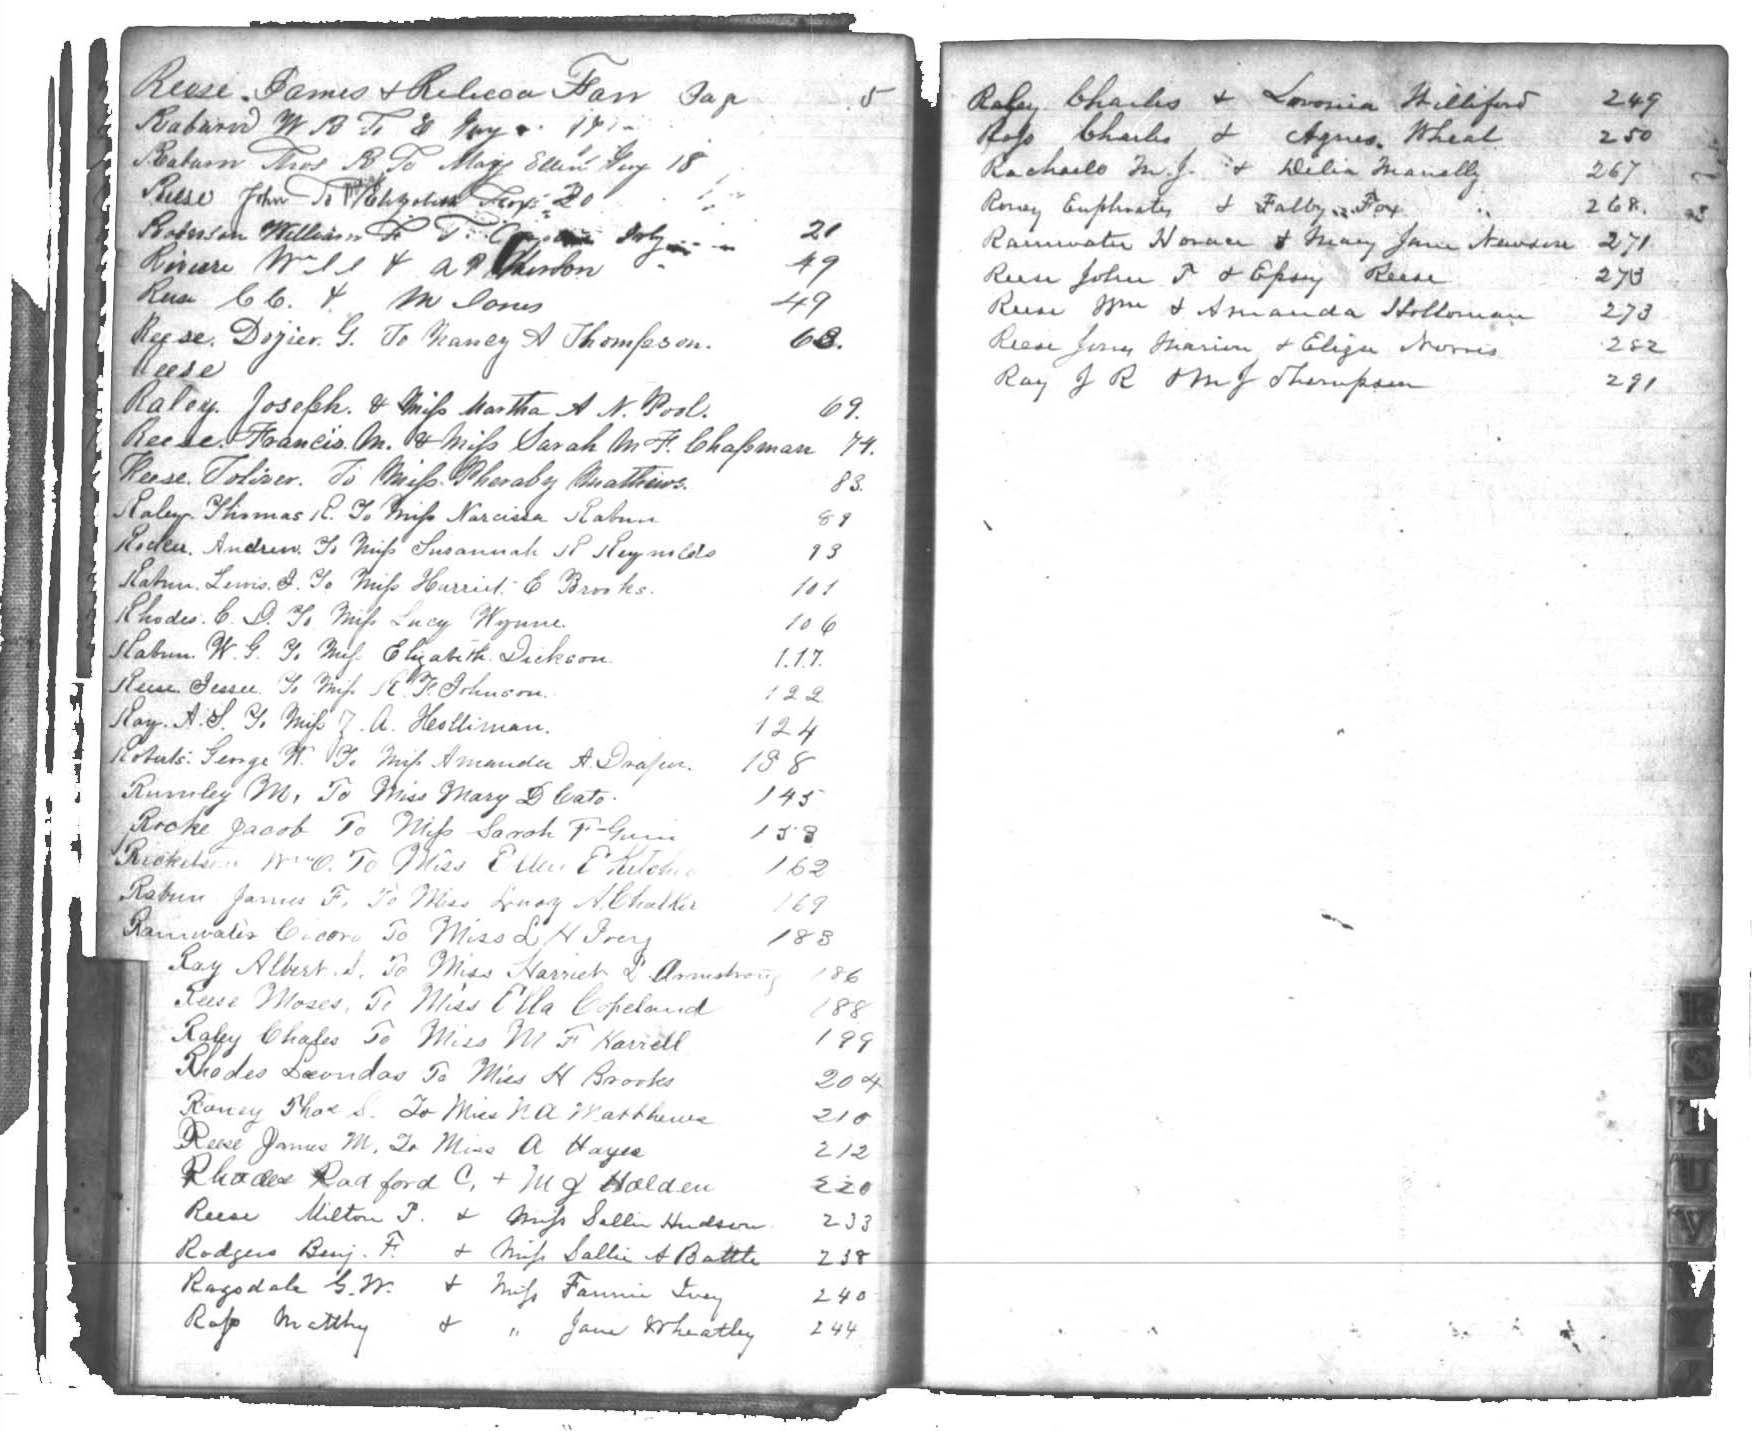 Reese James & Rebecca Farr Page 5
Raburn W B To E Guy 17
Raburn Thos R To Mary Ellen Guy 18
Reese John To Elizabeth Fox 20
Roberson William F T. 21
Riviere Wm & A P Cherdon 49
Reese C C. & M Jones 49
Reese. Dozier. G. To Nancy A Thompson. 63.
Reese
Raley. Joseph. & Miss Martha A N. Pool. 69.
Reese. Francis. M. & Miss Sarah M F. Chapman 74.
Reese. Toliver. To Miss. Pheraby Matthews. 83.
Raley. Thomas R. To Miss Narcissa Rabun 89
Andrew. To Miss Susannah R Reynolds 93
Rabun. Lewis. J. To Miss Harriet E Brooks. 101
Rhodes. C. D. To Miss Lucy Wynne. 106
Rabun. W. G. To Miss. Elizabeth. Dickson. 117.
Reese. Jessee. To Miss R. F. Johnson. 122
Ray. A. S. To Miss A. Holliman. 124
Roberts. George W. To Miss Amanda A. Draper. 138
Rumley M, To Miss Mary D Cato. 145
Rocke Jacob To Miss Sarah F Gunn 153
Wm O. To Miss Ellen E 162
Rabun James F. To Miss Lucy A. Chalker 169
Rainwater Cicero To Miss L H Ivery 183
Ray Albert. S. To Miss Harriet L Armstrong 186
Reese Moses, To Miss Ella Copeland 188
Raley Chales To Miss M F Harrell 199
Rhodes Leondas To Miss H Brooks 204
Roney Thos S. To Miss N A Matthews 210
Reese James M. To Miss A Hayes 212
Rhodes Radford C, + M J Holden 220
Reese Milton P. & Miss Sallie Hudson 233
Rodgers Benj. F. & Miss Sallie A Battle 238
Ragsdale G. W. & Miss Fannie Ivey 240
Ross Matthy & " Jane Wheatley 244
Raley Charles & Lovonia Williford 249
Ross Charles & Agnes. Wheat 250
Rachaelo M. J. & Delia Manelly 267
Roney Euphrates & Falby Fox 268.
Rainwater Horace & Mary Jane Newsom 271
Reese John T & Epsey Reese 273
Reese Wm & Amanda Holloman 273
Reese Jones Marion & Eliza Norris 282
Ray J R & M J Thompson 291
R
S
T
U
V